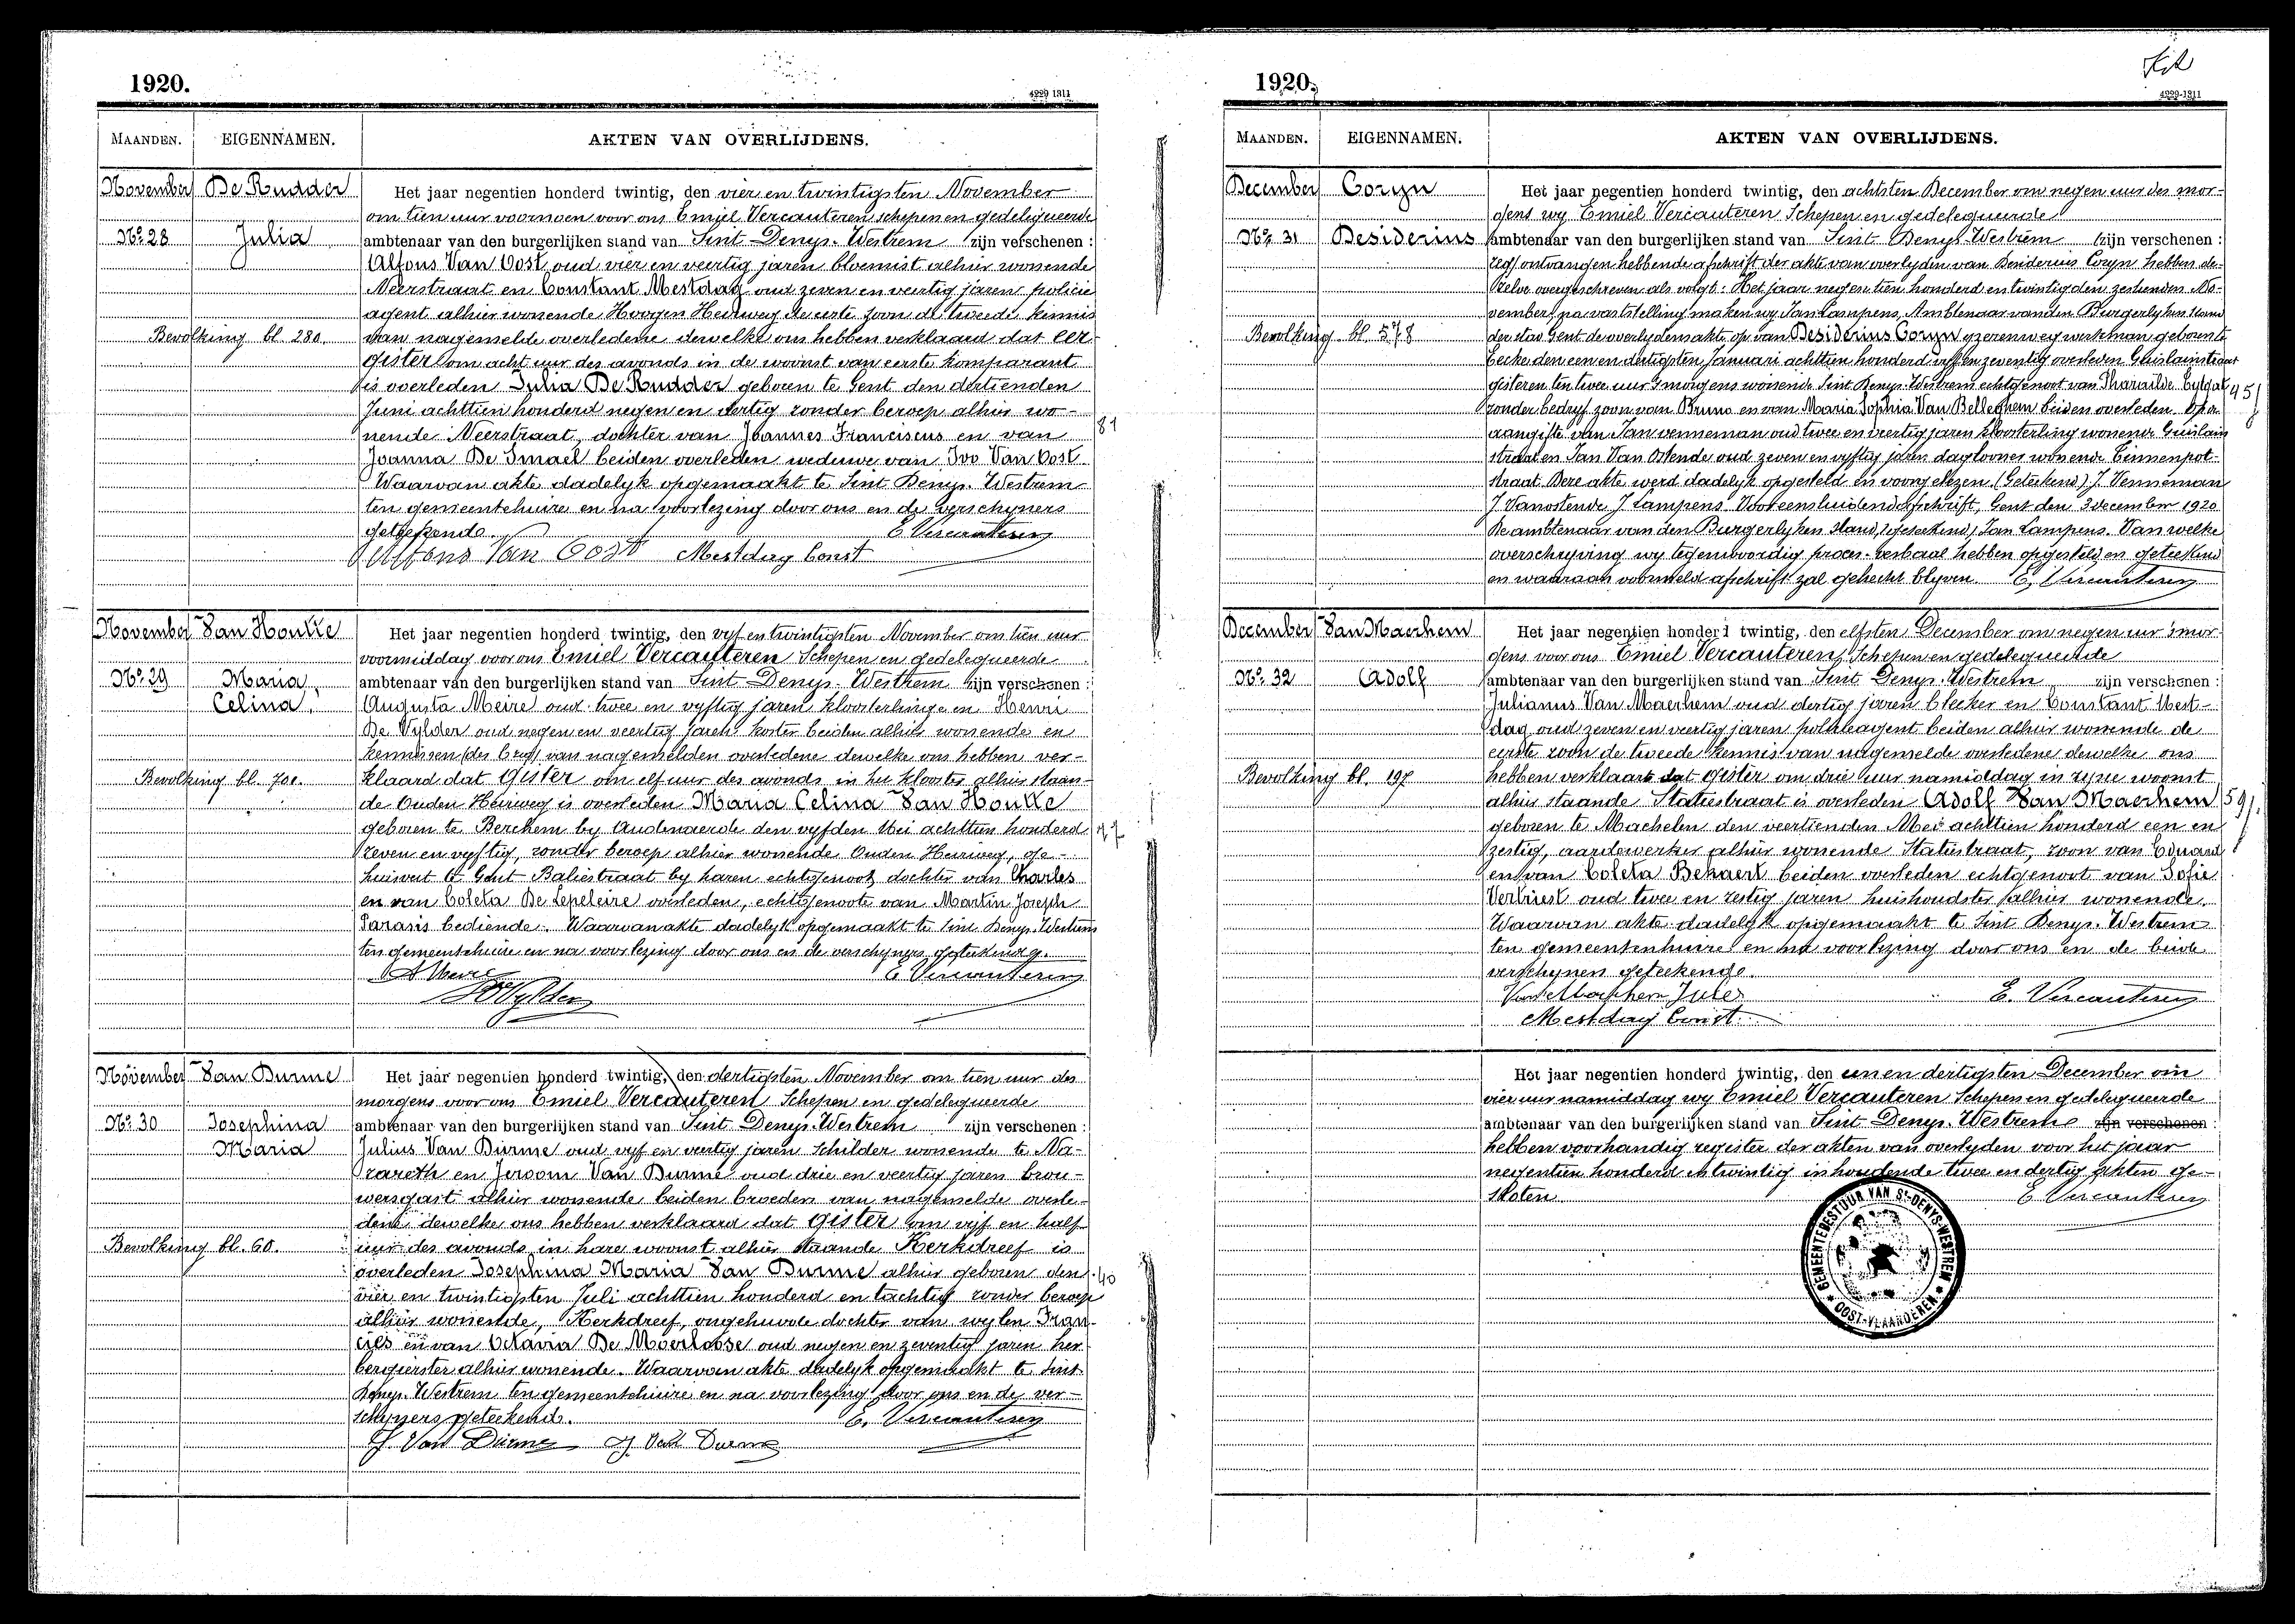 1920.
4229 1311
MAANDEN.
EIGENNAMEN.
AKTEN VAN OVERLIJDENS.
November De Rudder
Het jaar negentien honderd twintig, den vier en twintigsten November
om tien uur voornoen voor ons Emiel Vercauteren schepen en gedelegueerde
No. 28 Julia
ambtenaar van den burgerlijken stand van Sint Denys-Westrem zijn verschenen :
Alfons Van Oost, oud vier en veertig jaren bloemist alhier wonende
Neerstraat en Constant Mestdag oud zeven en veertig jaren policie
agent alhier wonende Hoogen Heirweg de eerste zoon de tweede kennis
Bevolking bl. 280.
van nagemelde overledene dewelke ons hebben verklaard dat eer
gister om acht uur des avonds in de woonst van eerste komparant
is overleden Julia De Rudder geboren te Gent den dertienden
Juni achttien honderd negen en dertig zonder beroep alhier wo-
nende Neerstraat, dochter van Joannes Franciscus en van
81
Joanna De Smael beiden overleden weduwe van Ivo Van Oost.
Waarvan akte dadelyk opgemaakt te Sint Denys-Westrem
ten gemeentehuize en na voorlezing door ons en de verschyners
geteekend. E. Vercauteren
Alfons Van Oost Mestdag Const
November Van Houtte
Het jaar negentien honderd twintig, den vyf en twintigsten November om tien uur
voormiddag voor ons Emiel Vercauteren Schepen en gedelegueerde
No. 29 Maria
ambtenaar van den burgerlijken stand van Sint Denys-Westrem zijn verschenen :
Celina.
Augusta Meire oud twee en vyftig jaren kloosterlinge en Henri
De Vylder oud negen en veertig jaren koster beiden alhier wonende en
kennissen (des bryf) van nagemelden overledene dewelke ons hebben ver-
Bevolking bl. 701.
klaard dat gister om elf uur des avonds in het klooster alhier staan-
de Ouden Heirweg is overleden Maria Celina Van Houtte
geboren te Berchem by Audenaerde den vyfden Mei achttien honderd
zeven en vyftig, zonder beroep alhier wonende Ouden Heirweg, ge-
huisvest te Gent Baliestraat by haren echtgenoot dochter van Charles
en van Coleta De Lepeleire overleden, echtgenoote van Martin Joseph
Sarasis bediende. Waarvan akte dadelyk opgemaakt te Sint Denys-Westrem
ten gemeentehuize en na voorlezing door ons en de verschyners geteekend.
A Meire E. Vercauteren
De Vylder
November Van Durme
Het jaar negentien honderd twintig, den dertigsten November om tien uur des
morgens voor ons Emiel Vercauteren Schepen en gedelegueerde
No. 30 Josephina
ambtenaar van den burgerlijken stand van Sint Denys-Westrem zijn verschenen :
Maria
Julius Van Durme oud vyf en veertig jaren Schilder wonende te Na-
zareth en Jeroom Van Durme oud drie en veertig jaren brou-
wersgast alhier wonende beiden broeders van nagemelde overle-
dene dewelke ons hebben verklaard dat gister om vijf en half
Bevolking bl. 60.
uur des avonds in hare woonst alhier staande Kerkdreef is
overleden Josephina Maria Van Durme alhier geboren den
40
vier en twintigsten Juli achttien honderd en tachtig zonder beroep
alhier wonende, Kerkdreef, ongehuwde dochter van wylen Fran-
cies en van Octavia De Moerloose oud negen en zeventig jaren her-
bergierster alhier wonende. Waarvan akte dadelyk opgemaakt te Sint
Denys-Westrem ten gemeentehuize en na voorlezing door ons en de ver-
schyners geteekend. E. Vercauteren
J. Van Durme J. Van Durme
1920.
4229-1311
MAANDEN.
EIGENNAMEN.
AKTEN VAN OVERLIJDENS.
December Coryn
Het jaar negentien honderd twintig, den achtsten December om negen uur des mor-
gens wy Emiel Vercauteren Schepen en gedelegueerde
No. 31 Desiderius
ambtenaar van den burgerlijken stand van Sint Denys-Westrem zijn verschenen :
ontvangen hebbende afschrift der akte van overlyden van Desiderius Coryn hebben de-
zelve overgeschreven als volgt: Het jaar negentien honderd en twintig den zestienden No-
vember na vaststelling maken wy Jan Lampens, Ambtenaar van den Burgerlyken Stand
Bevolking bl. 578
der stad Gent de overlydensakte op van Desiderius Coryn yzerenwegwerkman geboren te
Eecke den een en dertigsten Januari achttien honderd vyf en zeventig overleden Guislainstraat
gisteren ten twee uur s'morgens wonende Sint Denys-Westrem echtgenoot van Tharailde
45
zonder bedryf zoon van Bruno en van Maria Sophia Van Belleghem beiden overleden. Op de
aangifte van Jan Venneman oud twee en veertig jaren kloosterling wonende Guislain
straat en Jan Van Ostende oud zeven en vyftig jaren daglooner wonende Tinnenpot-
straat. Deze akte werd dadelyk opgesteld en voorgelezen. (Geteekend) J. Venneman
J. Vanostende J. Lampens. Voor eensluidend afschrift, Gent den 3 december 1920
De ambtenaar van den Burgerlyken Stand, (geteekend) Jan Lampens. Van welke
overschryving wy tegenwoordig proces-verbaal hebben opgesteld en geteekend
en waaraan voormeld afschrift zal gehecht blyven. E. Vercauteren
December Van Maerhem
Het jaar negentien honderd twintig, den elfsten December om negen uur s'mor-
gens voor ons Emiel Vercauteren, Schepen en gedelegueerde
No. 32 Adolf
ambtenaar van den burgerlijken stand van Sint Denys-Westrem zijn verschenen :
Julianus Van Maerhem oud dertig jaren bleeker en Constant Mest-
dag oud zeven en veertig jaren policieagent beiden alhier wonende de
eerste zoon de tweede kennis van nagemelde overledene dewelke ons
Bevolking bl. 197
hebben verklaard dat gister om drie uur namiddag in zyne woonst
alhier staande Statiestraat is overleden Adolf Van Maerhem
59
geboren te Machelen den veertienden Mei achttien honderd een en
zestig, aardewerker alhier wonende Statiestraat, zoon van Eduard
en van Coleta Bekaert beiden overleden echtgenoot van Sofie
Verbiest oud twee en zestig jaren huishoudster alhier wonende.
Waarvan akte dadelyk opgemaakt te Sint Denys-Westrem
ten gemeentenhuize en na voorlezing door ons en de beide
verschyners geteekend.
Van Maerhem Jules E. Vercauteren
Mestdag Const.
Het jaar negentien honderd twintig, den een en dertigsten December om
vier uur namiddag wy Emiel Vercauteren Schepen en gedelegueerde
ambtenaar van den burgerlijken stand van Sint Denys-Westrem zijn verschenen :
hebben voorhandig register der akten van overlyden voor het jaar
negentien honderd en twintig inhoudende twee en dertig akten ge-
sloten. E. Vercauteren
GEMEENTEBESTUUR VAN ST-DENYS-WESTREM
OOST-VLAANDEREN